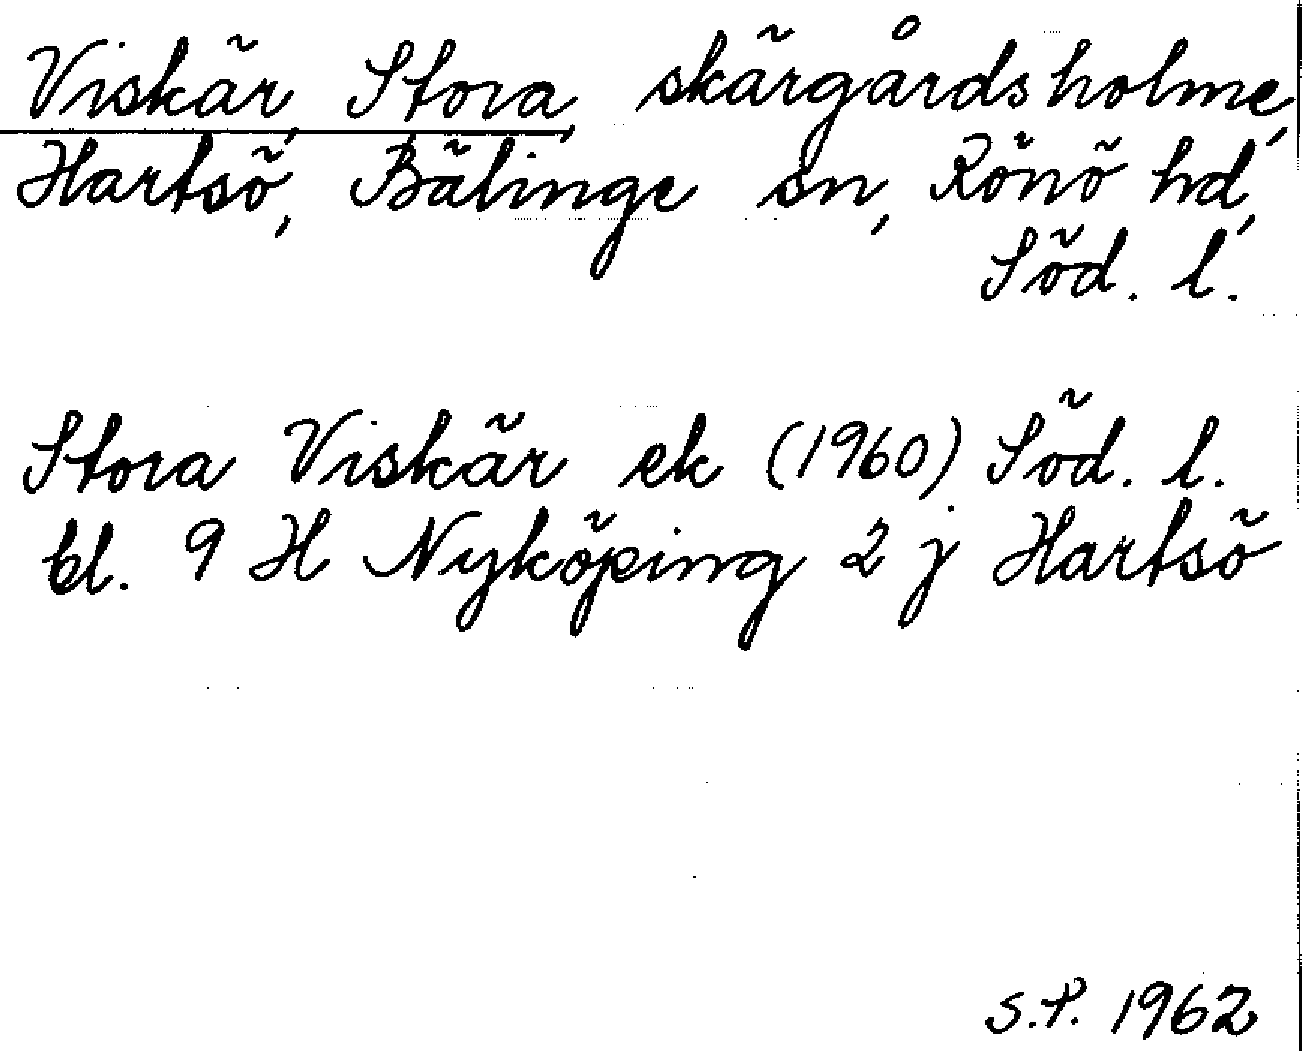 Viskär, Stora, skärgårdsholme,
Hartsö, Bälinge sn, Rönö hd,
Söd. l.
Stora Viskär ek (1960) Söd. l.
bl. 9 H Nyköping 2 j Hartsö
S.P. 1962